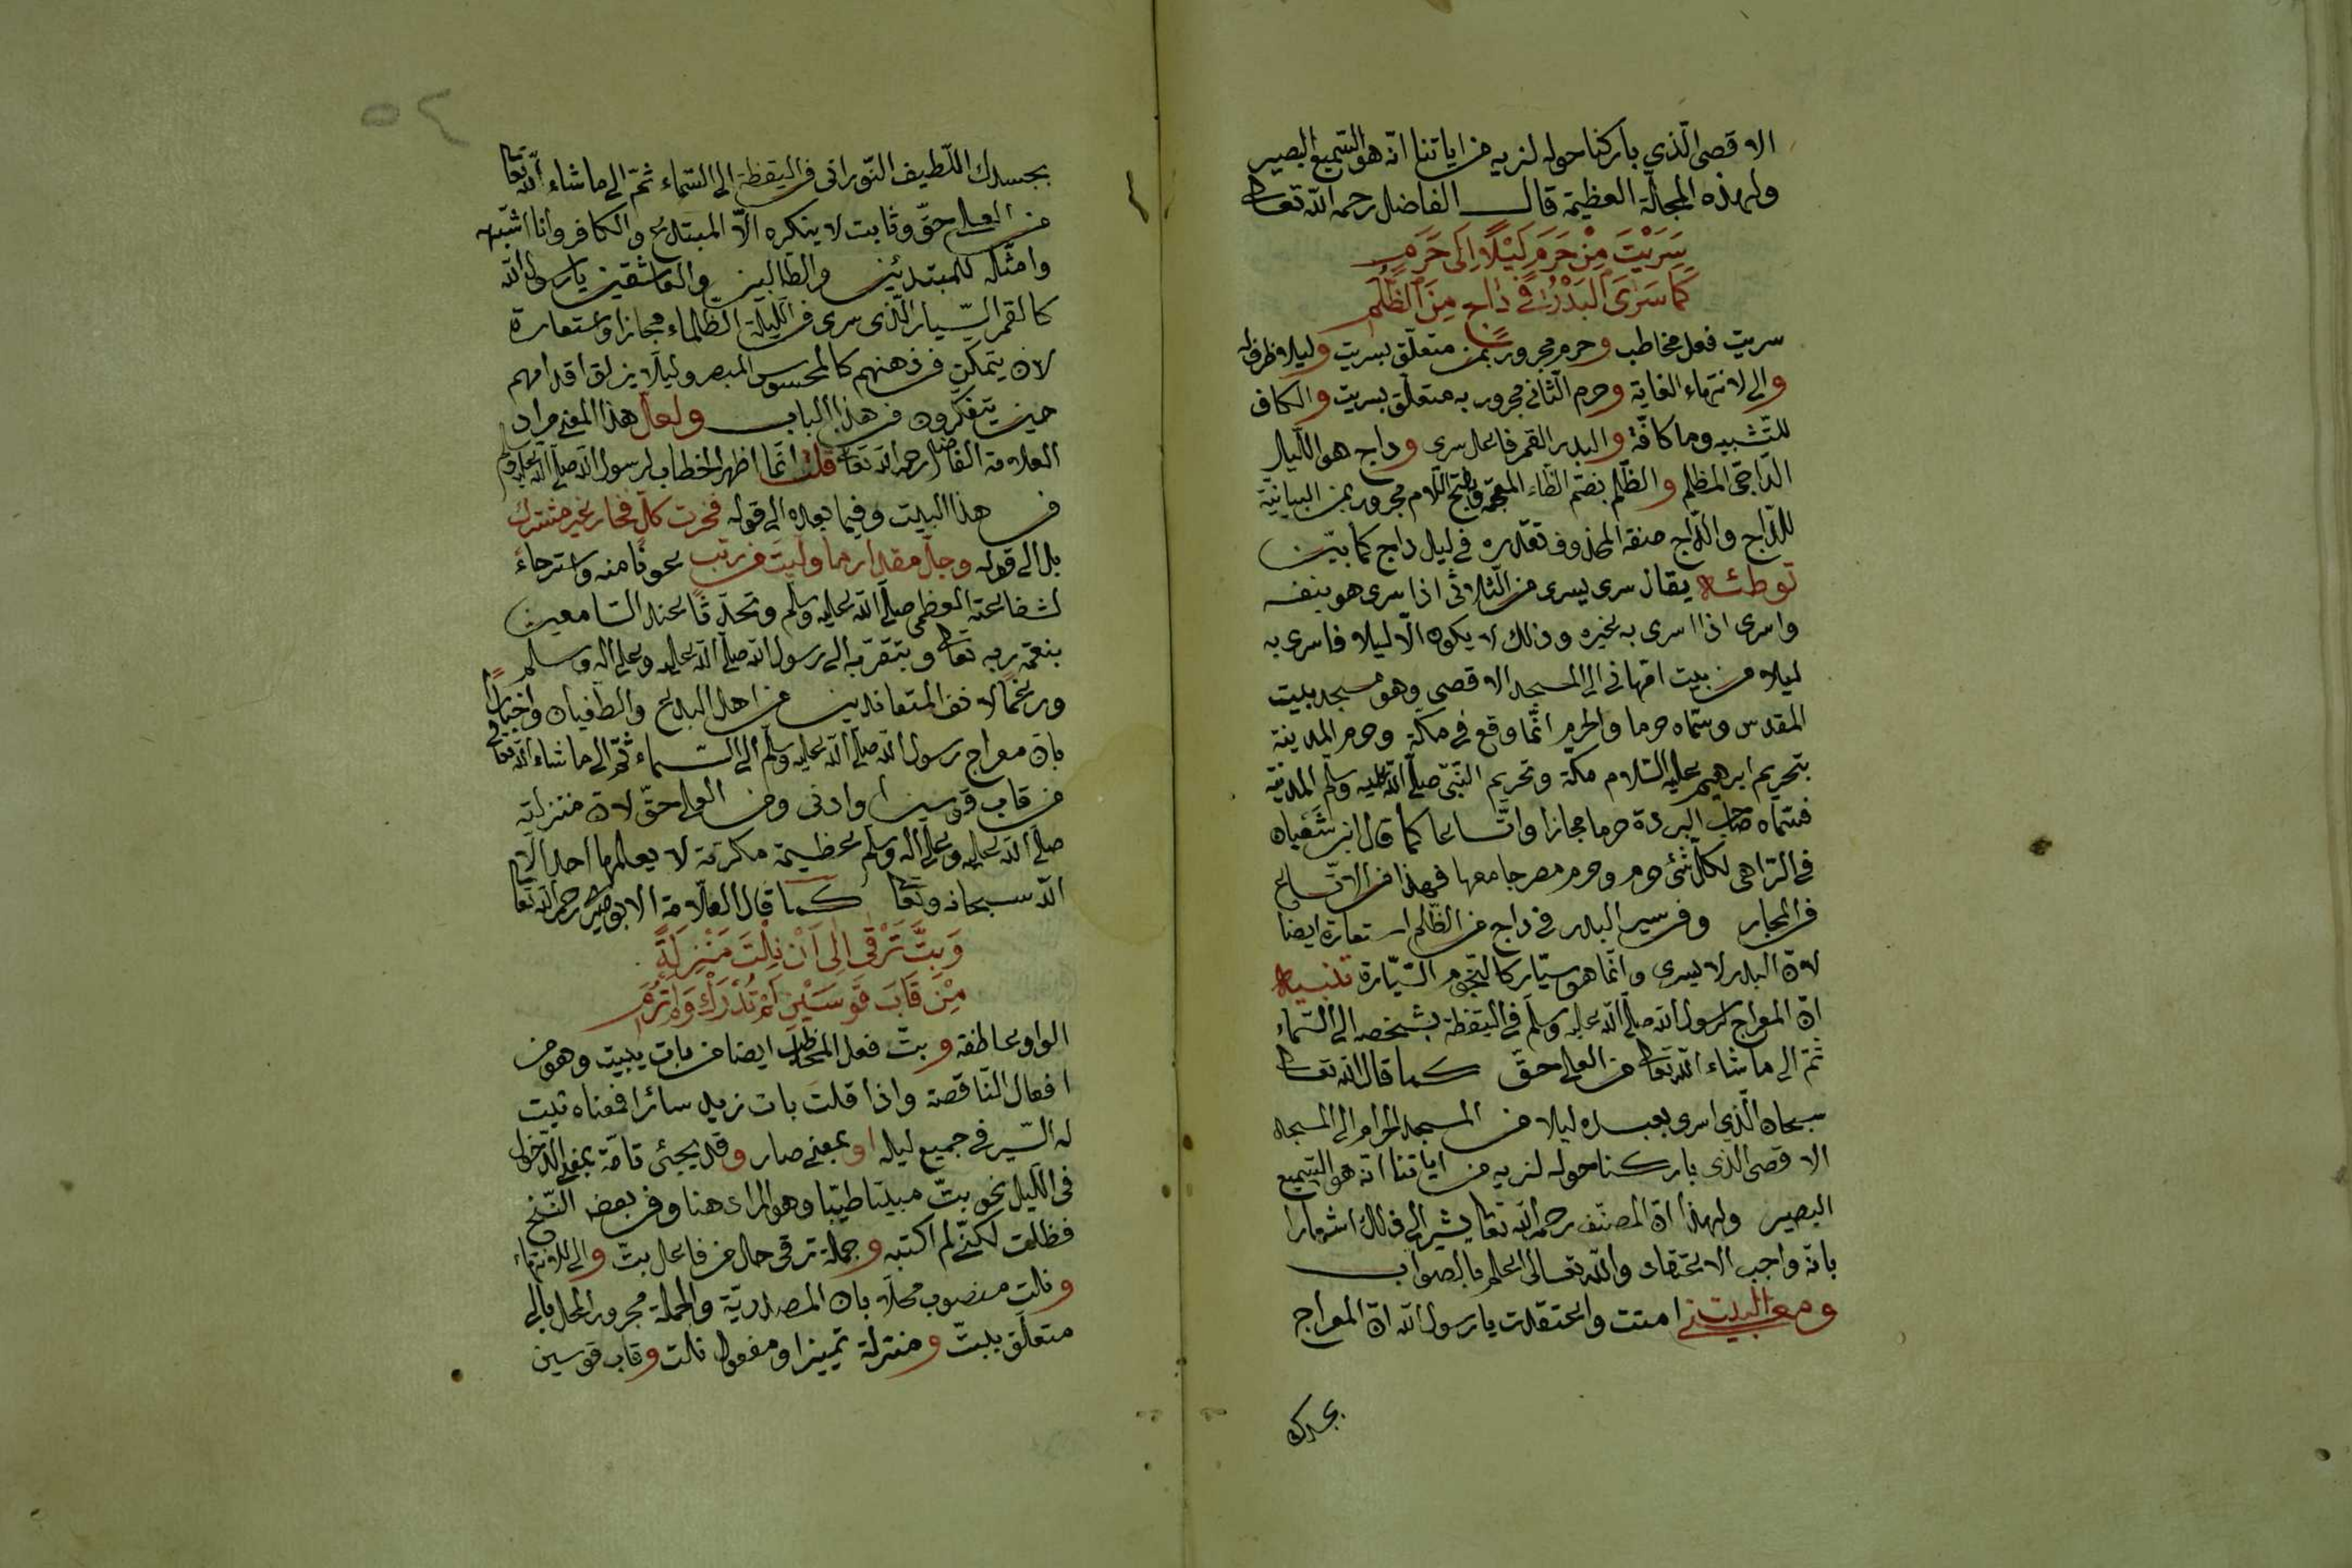 الاقصى الّذي باركنا حوله لنريه من اياتنا انّه هو السّميع البصير
ولهذه العظيمة قال الفاضل رحمه الله تعالى
سَرَيْتَ مِنْ حَرَمٍ لَيْلًا اِلَى حَرَمٍ
كَمَا سَرَى الْبَدْرُ فِي دَاجٍ مِنَ الظُّلَمِ
سريت فعل مخاطب وحرم مجرور بمن متعلّق بسريت وليلا ظرف له
والى لانتهاء الغاية وحرم الثّاني مجرور به متعلّق بسريت والكاف
للتّشبيه وما كافّة والبدر القمر فاعل سرى وداج هو اللّيل
الدّاجى المظلم والظّلم بضمّ الظّاء المعجمة وفتح اللّام مجرور بمن البيانيّة
للدّاج والدّاج صفة المحذوف تقديره في ليل داج كما بيّن
توطئه يقال سرى يسرى من الثّلاثى اذا سرى هو بنفسه
واسرى اذا اسرى به غيره وذلك لا يكون الّا ليلا فاسرى به
ليلا من بيت امّهانى الى المسجد الاقصى وهو مسجد بيت
المقدس وسمّاه حرما والحرم انّما وقع في مكّة وحرم المدينة
بتحريم ابرهيم عليه السّلام مكّة وتحريم النّبيّ صلّى الله عليه وسلّم المدينة
فسمّاه صاحب البردة حرما مجازا واتّساعا كما قال ابن شعبان
في الزّاهى لكلّ شئ حرم وحرم مصر جامعها فهذا من الاتّساع
في المجاز وفي سير البدر في داج من الظّلم استعارة ايضا
لانّ البدر لا يسرى وانّما هو سيّار كالنّجوم السّيّارة تنبيه
انّ المعراج لرسول الله صلّى الله عليه وسلّم في اليقظة بشخصه الى السّماء
ثمّ الى ما شاء الله تعالى من العلى حقّ كما قال الله تعالى
سبحان الّذي اسرى بعبده ليلا من المسجد الحرام الى المسجد
الاقصى الّذي باركنا حوله لنريه من اياتنا انّه هو السّميع
البصير ولهذا انّ المصنّف رحمه الله تعالى يشير الى ذلك اشعارا
بانّه واجب الاعتقاد والله تعالى اعلم بالصواب
ومعنى البيت انى امنت واعتقدت يا رسول الله انّ المعراج
بجسدك
٥٤
بجسدك اللّطيف النّورانى في اليقظة الى السّماء ثمّ الى ما شاء الله تعالى
من العلى حقّ وثابت لا ينكره الّا المبتدع والكافر وانا اشبّهه
وامثّله للمبتدئين والطّالبين والعاشقين يا رسول الله
كالقمر السّيار الّذى سرى في اللّيلة الظّلماء مجازا واستعارة
لان يتمكّن في ذهنهم كالمحسوس المبصر وليلا يزلق اقدامهم
حين يتفكّرون في هذا الباب ولعلّ هذا المعنى مراد
العلّامة الفاضل رحمه الله تعالى قلت انّما اظهر الخطاب لرسول الله صلّى الله عليه وسلّم
في هذا البيت وفيما بعده الى قوله فخرت كلّ فخار غير مشترك
بل الى قوله وجلّ مقدار ما ولّيت من رتب عونا منه واسترحاء
لشفاعته العظمى صلّى الله عليه وسلّم وتحدّثا عند السّامعين
بنعمة ربه تعالى وبتقرّبه الى رسول الله صلّى الله عليه وعلى اله وسلم
ورغما لانف المتعاندين من اهل البدع والطّغيان واخبارا
بانّ معراج رسول الله صلّى الله عليه وسلّم الى السّماء ثمّ الى ما شاء الله تعالى
من قاب قوسين او ادنى ومن العلى حقّ لانّ منزلته
صلّى الله عليه وعلى اله وسلّم عظيمة مكرّمة لا يعلمها احد الّا
الله سبحانه وتعالى كما قال العلّامة الابوصيرى رحمه الله تعالى
وَبِتَّ تَرْقَى اِلَى اَنْ نِلْتَ مَنْزِلَةً
مِنْ قَابَ قَوْسَيْنِ لَمْ تُدْرَكْ وَلَمْ تُرَمِ
الواو عاطفة وبتّ فعل المخاطب ايضا من بات يبيت وهو من
افعال النّاقصة واذا قلت بات زيد سائرا فمعناه ثبت
له السّير في جميع ليله او بمعنى صار وقد يجئ تامّة بمعنى الدّخول
في اللّيل نحو بتّ مبيتا طيّبا وهو المراد هنا وفي بعض النّسخ
فظلت لكنّى لم اكتبه وجملة ترقى حال من فاعل بتّ والى للانتهاء
ونلت منصوب محلّا بان المصدريّة والجملة مجرور المحلّ بالى
متعلّق ببتّ ومنزلة تميزا ومفعول نلت وقاب قوسين